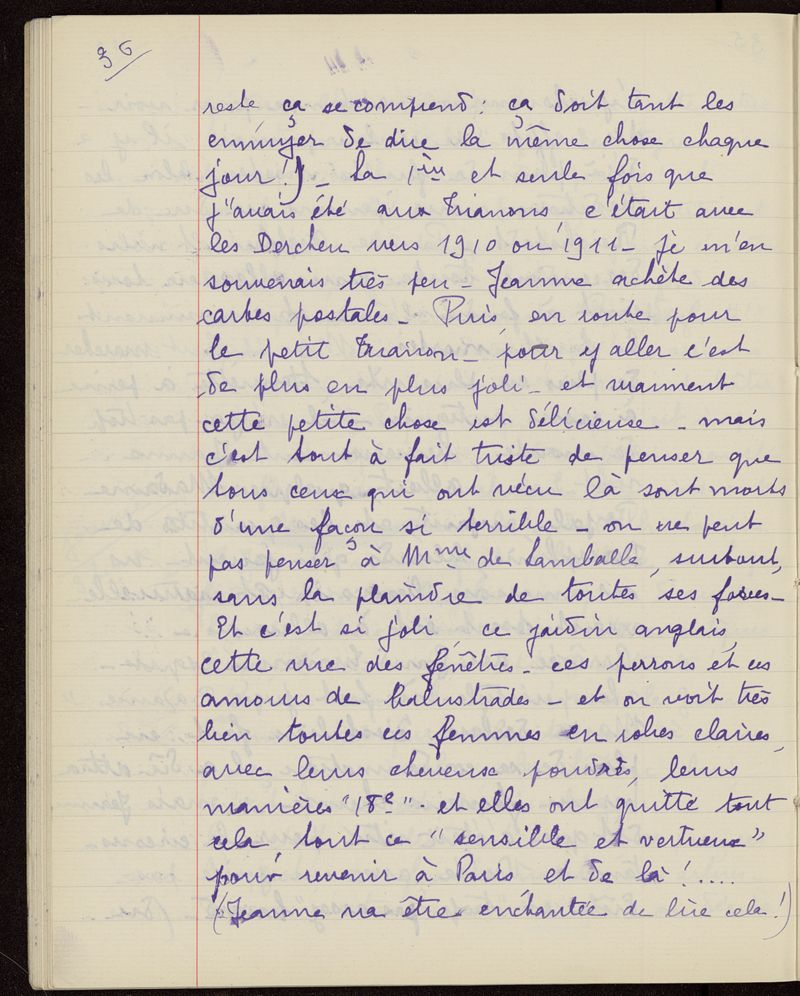 36
reste ça se comprend : ça doit tant les
ennuyer de dire la même chose chaque
jour !) _ La 1ère et seule fois que
j'avais été aux Trianons c'était avec
les Dercheu vers 1910 ou 1911 _ je m'en
souvenais très peu _ Jeanne achète des
cartes postales _ Puis en route pour
le petit Trianon _ pour y aller c'est
de plus en plus joli _ et vraiment
cette petite chose est délicieuse _ mais
c'est tout à fait triste de penser que
tous ceux qui ont vécu là sont morts
d'une façon si terrible _ on ne peut
pas penser à Mme de Lamballe, surtout,
sans la plaindre de toutes ses forces _
Et c'est si joli, ce jardin anglais,
cette vue des fenêtres _ ces perrons et ces
amours de balustrades _ et on voit très
bien toutes ces femmes en robes claires,
avec leurs cheveux poudrés, leurs
manières "18e" _ et elles ont quitté tout
cela tout ce "sensible et vertueux"
pour revenir à Paris et de là !....
(Jeanne va être enchantée de lire cela !)